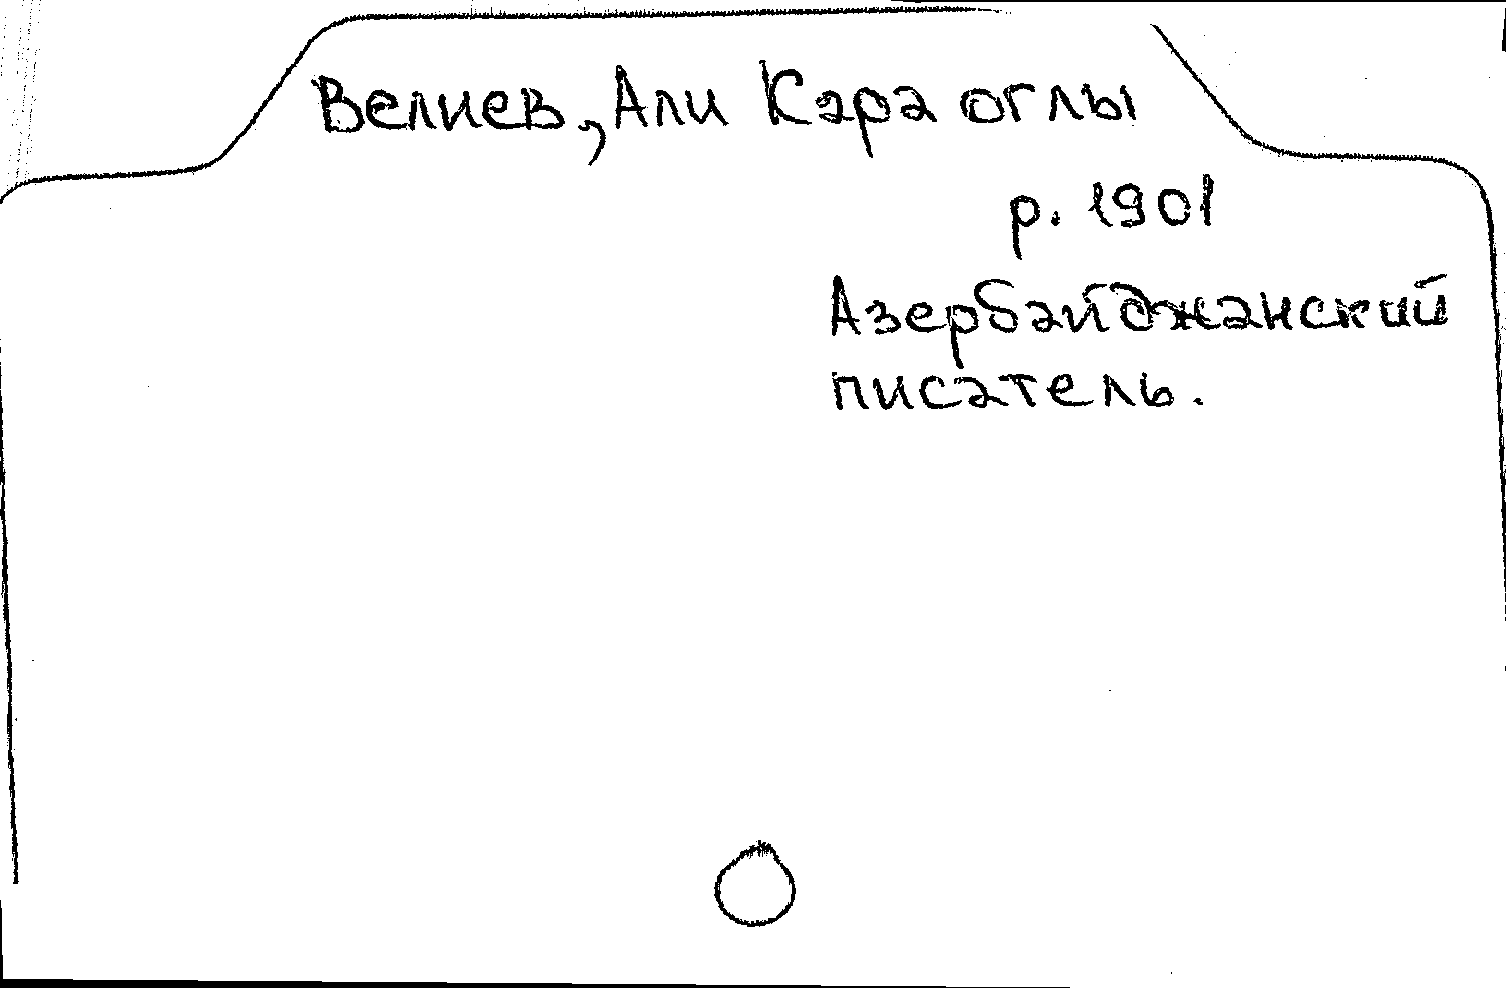 Велиев, Али Кара оглы
р. 1901
Азербайджанский
писатель.